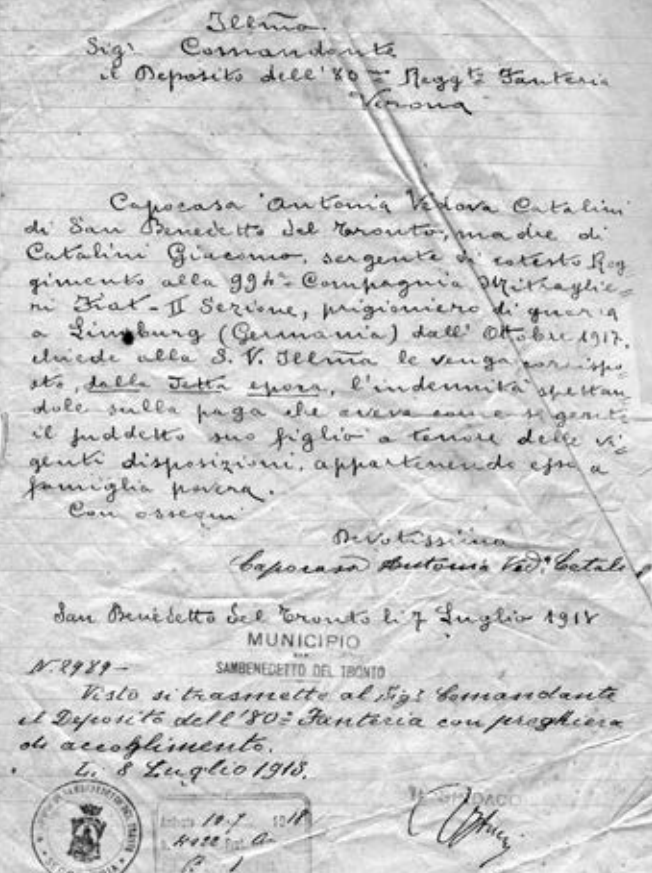 Illmo.
Sigr Comandante
il Deposito dell'80mo Reggto Fanteria
Verona
Capocasa Antonia Vedova Catalini
di San Benedetto del Tronto, madre di
Catalini Giacomo, sergente di cotesto Reg=
gimento alla 994a Compagnia Mitraglie=
ri Fiat - II Sezione, prigioniero di guerra
a Limburg (Germania) dall'Ottobre 1917,
chiede alla S. V. Illma le venga corrispo=
sto, dalla detta epoca, l'indennità spettan=
dole sulla paga che aveva come sergente
il suddetto suo figlio a tenore delle vi=
genti disposizioni, appartenendo essa a
famiglia povera.
Con ossequi
Devotissima
Capocasa Antonia Ved. Catali
San Benedetto del Tronto li 7 Luglio 1918
MUNICIPIO
SAMBENEDETTO DEL TRONTO
N. 2989 -
Visto si trasmette al Sigr Comandante
il Deposito dell'80o Fanteria con preghiera
di accoglimento.
Li 8 Luglio 1918.
IL SINDACO
10-7 1918